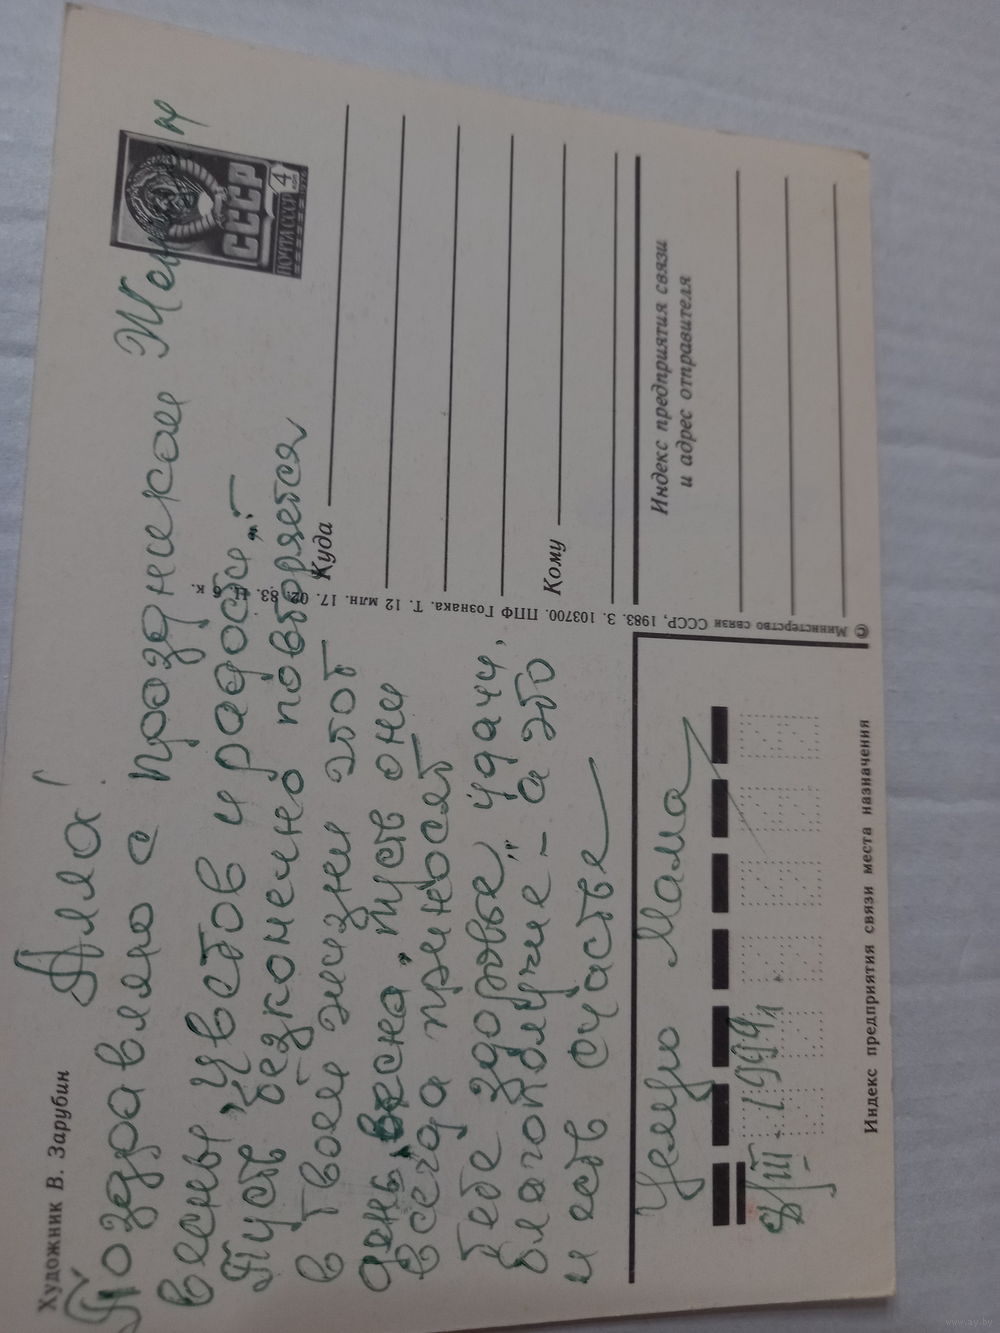 Художник В. Зарубин
ПОЧТА СССР
СССР
4
коп
Аля!
Поздравляю с праздником
весны, цветов и радости.
Пусть безконечно повторяется
в твоей жизни этот
день, весна, пусть они
всегда приносят
Тебе здоровье, удачи,
благополучие - а это
и есть счастье
Целую Мама
8/III - 1999г.
Куда
Кому
Индекс предприятия связи
и адрес отправителя
© Министерство связи СССР, 1983. З. 103700. ППФ Гознака. Т. 12 млн. 17. 02. 83. Ц. 6 к.
Индекс предприятия связи места назначения
www.ay.by